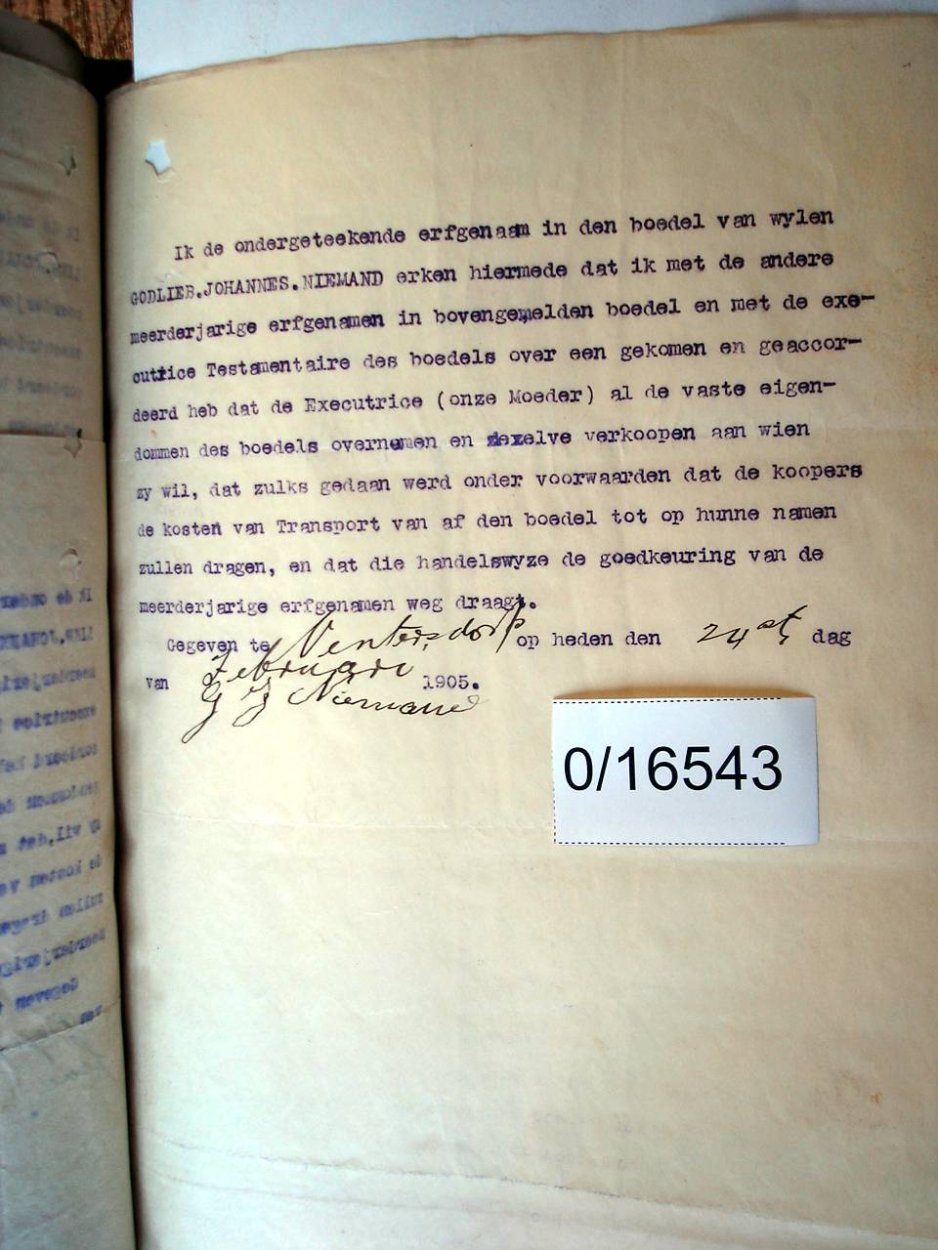 Ik de ondergeteekende erfgenaam in den boedel van wylen
GODLIEB.JOHANNES.NIEMAND erken hiermede dat ik met de andere
meerderjarige erfgenamen in bovengemelden boedel en met de exe-
cutrice Testamentaire des boedels over een gekomen en geaccor-
deerd heb dat de Executrice (onze Moeder) al de vaste eigen-
dommen des boedels overnemen en dezelve verkoopen aan wien
zy wil, dat zulks gedaan werd onder voorwaarden dat de koopers
de kosten van Transport van af den boedel tot op hunne namen
zullen dragen, en dat die handelswyze de goedkeuring van de
meerderjarige erfgenamen weg draagt.
Gegeven te Ventersdorp op heden den 24st dag
van Februari 1905.
G J Niemand
0/16543